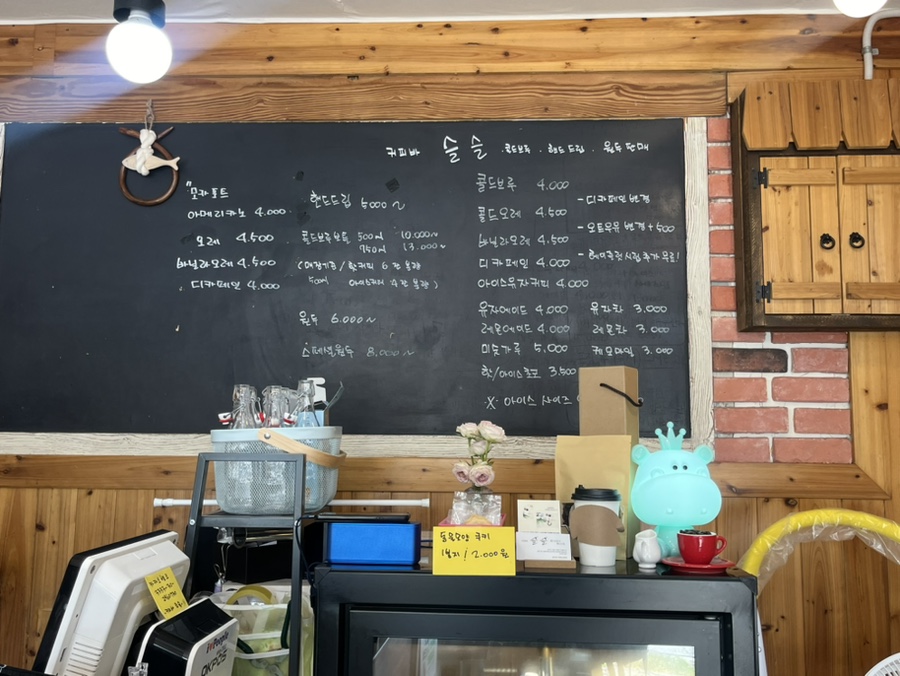 커피바 슬슬 · 콜드브루 · 핸드드립 · 원두판매
"모카포트
아메리카노 4.000
오레 4.500
바닐라오레 4.500
디카페인 4.000
핸드드립 5000 ~
콜드브루보틀 500ml 10.000~
750ml 13.000~
500ml 아이스커피 4잔 분량 )
원두 6.000 ~
스페셜원두 8.000 ~
콜드브루 4.000
콜드오레 4.500
바닐라오레 4.500
디카페인 4.000
아이스유자커피 4.000
유자에이드 4.000
레몬에이드 4.000
미숫가루 5.000
핫/아이스초코 3.500
·X· 아이스 사이즈
- 디카페인 변경
- 오트우유 변경 + 500
- 헤이즐넛시럽 추가 무료!
유자차 3.000
레몬차 3.000
케모마일 3.000
동물모양 쿠키
1봉지 / 2.000원
OKPOS